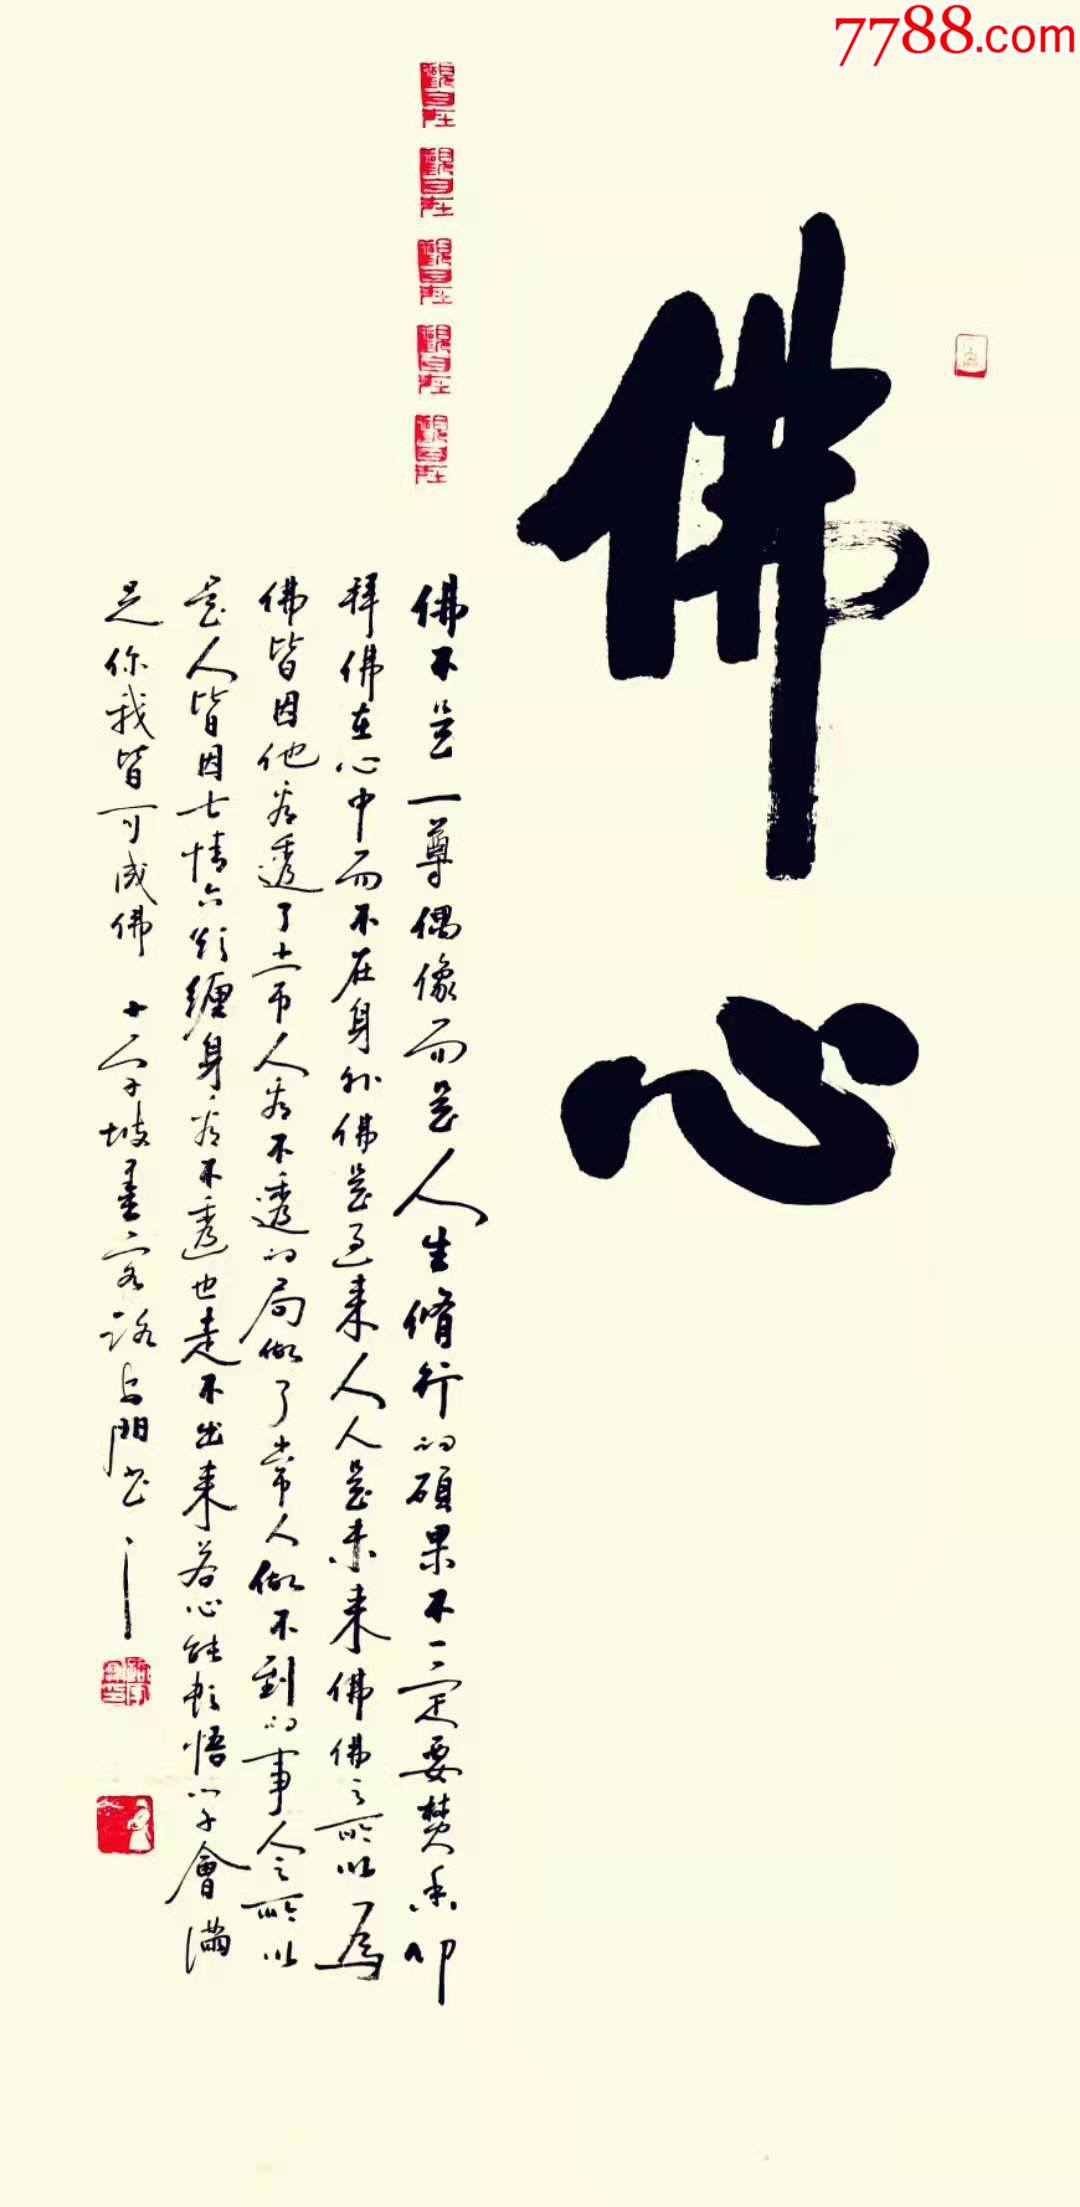 7788.com
佛心
觀自在
觀自在
觀自在
觀自在
觀自在
佛不是一尊偶像而是人生脩行的碩果不一定要焚香叩
拜佛在心中而不在身外佛是过来人人是未来佛佛之所以為
佛皆因他看透了常人看不透的局做了常人做不到的事人之所以
是人皆因七情六欲缠身看不透也走不出来若心能顿悟学會满
足你我皆可成佛 十字坡墨客路书